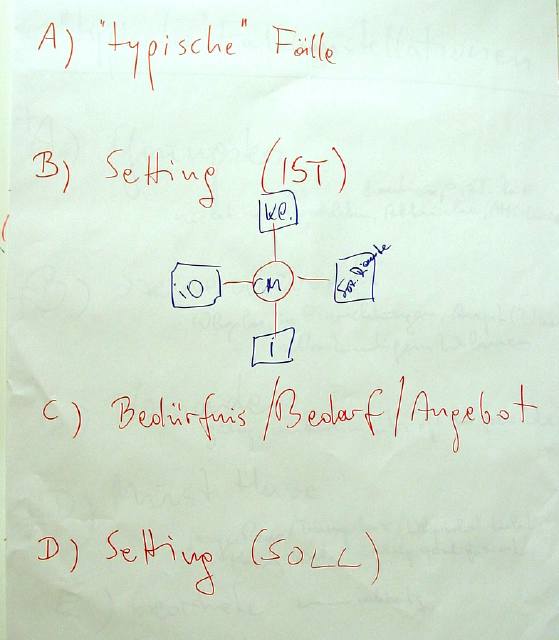 A) "typische" Fälle
B) Setting (IST)
Kl.
iO
CM
Soz. Dienste
i
C) Bedürfnis / Bedarf / Angebot
D) Setting (SOLL)